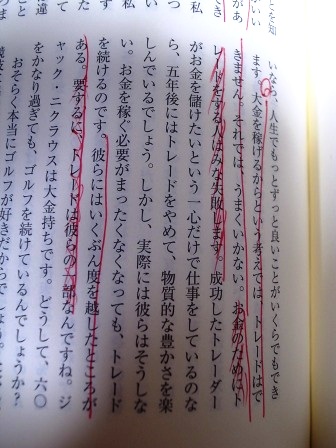 いな。人生でもっとずっと良いことがいくらでもでき
ます。大金を稼げるからという考えでは、トレードはで
きません。それでは、うまくいかない。お金のためにト
レードをする人はみな失敗します。成功したトレーダー
がお金を儲けたいという一心だけで仕事をしているのな
ら、五年後にはトレードをやめて、物質的な豊かさを楽
しんでいるでしょう。しかし、実際には彼らはそうしな
い。お金を稼ぐ必要がまったくなくなっても、トレード
を続けるのです。彼らにはいくぶん度を越したところが
ある。要するに、トレードは彼らの一部なんですね。ジ
ャック・ニクラウスは大金持ちです。どうして、六〇
をかなり過ぎても、ゴルフを続けているんでしょうか？
おそらく本当にゴルフが好きだからでし